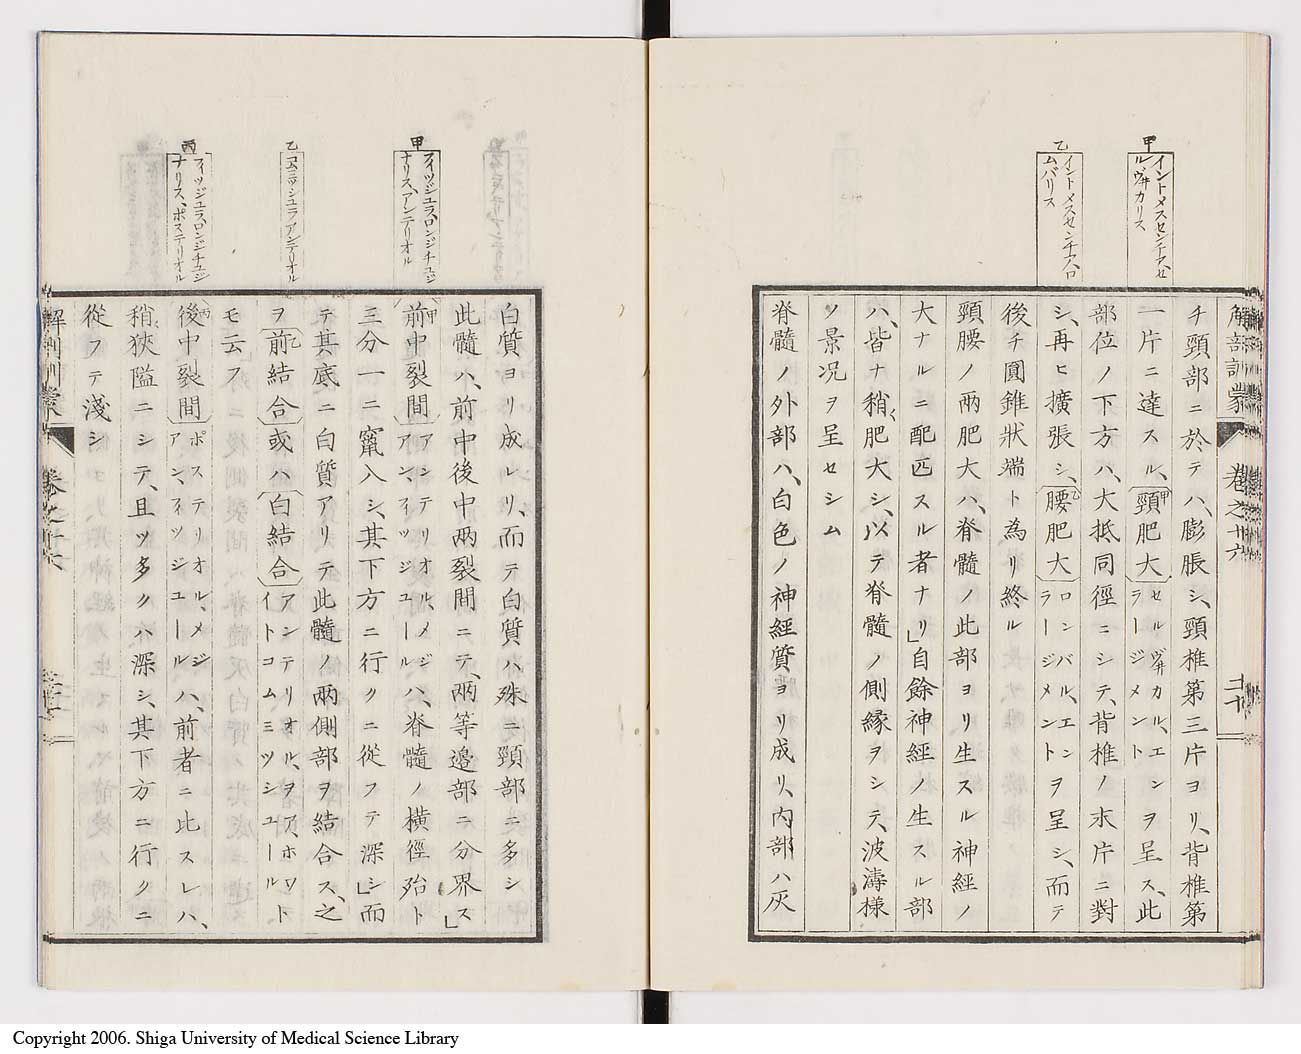 解剖訓蒙
卷之廿六
二十
甲
イントメスセンチアセ
ルヴ井カリス
乙
イントメスセンチアロ
ムバリス
チ頸部ニ於テハ、膨脹シ、頸椎第三片ヨリ、背椎第
一片ニ達スル、甲頸肥大セルヴ井カル、エンラージメントヲ呈ス、此
部位ノ下方ハ、大抵同徑ニシテ、背椎ノ末片ニ對
シ、再ヒ擴張シ、乙腰肥大ロンバル、エンラージメントヲ呈シ、而テ
後チ圓錐狀端ト為リ終ル
頸腰ノ兩肥大ハ、脊髓ノ此部ヨリ生スル神經ノ
大ナルニ配匹スル者ナリ」自餘神經ノ生スル部
ハ、皆ナ稍〱肥大シ、以テ脊髓ノ側緣ヲシテ、波濤樣
ノ景况ヲ呈セシム
脊髓ノ外部ハ、白色ノ神經質ヨリ成リ、內部ハ灰
甲
フイツジュラ、ロンジチュジ
ナリス、アンテリオル
乙
コムミッシュラ、アンテリオル
丙
フイツジュラ、ロンジチュジ
ナリス、ポステリオル
白質ヨリ成レリ、而テ白質ハ殊ニ頸部ニ多シ
此髓ハ、前中後中兩裂間ニテ、兩等邊部ニ分界ス」
甲前中裂間アンテリオル、メジアン、フイツジユールハ、脊髓ノ橫徑殆ト
三分一ニ竄入シ、其下方ニ行クニ從フテ深シ」而
テ其底ニ白質アリテ此髓ノ兩側部ヲ結合ス、之
ヲ乙前結合或ハ白結合アンテリオル、ヲア、ホワイトコムミツシユールト
モ云フ
丙後中裂間ポステリオル、メジアン、フイツジユールハ、前者ニ此スレハ、
稍〱狹隘ニシテ、且ツ多クハ深シ、其下方ニ行クニ
從フテ淺シ
解剖訓蒙
卷之廿六
Copyright 2006. Shiga University of Medical Science Library